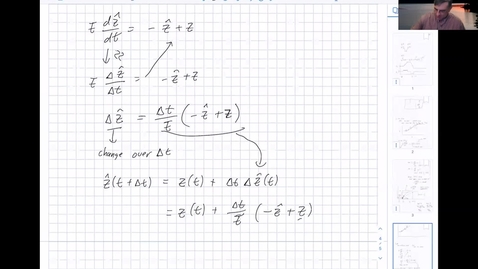 τ dẑ/dt = - ẑ + z
↓ ≈
τ Δẑ/Δt = - ẑ + z
Δẑ = Δt/τ (-ẑ + z)
↓
change over Δt
ẑ(t + Δt) = z(t) + Δt Δẑ(t)
= z(t) + Δt/τ (-ẑ + z)